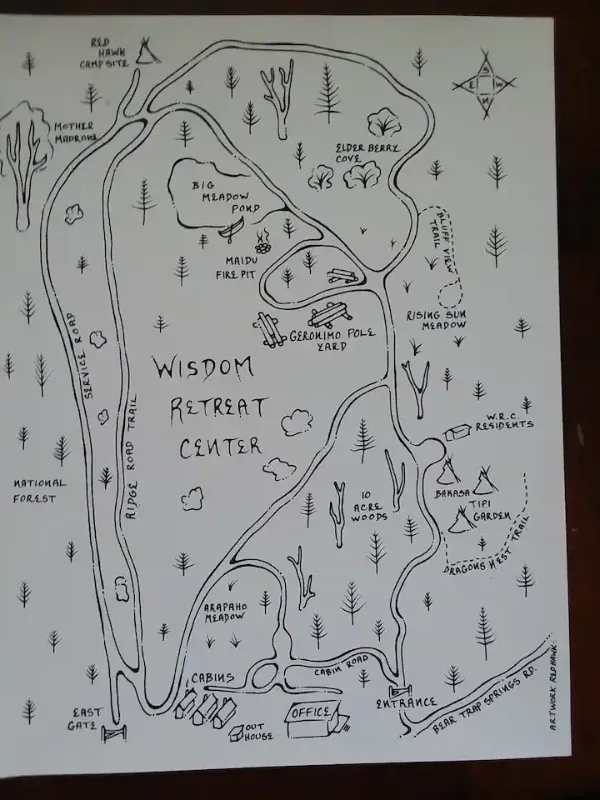 RED
HAWK
CAMPSITE
S
E W
N
MOTHER
MADRONE
ELDER BERRY
COVE
BIG
MEADOW
POND
BLUFF VIEW
TRAIL
MAIDU
FIRE PIT
RISING SUN
MEADOW
GERONIMO POLE
YARD
SERVICE ROAD
WISDOM
RETREAT
CENTER
RIDGE ROAD TRAIL
W.R.C.
RESIDENTS
NATIONAL
FOREST
10
ACRE
WOODS
BAKASA
TIPI
GARDEN
DRAGONS NEST TRAIL
ARAPAHO
MEADOW
CABIN ROAD
CABINS
ENTRANCE
EAST
GATE
OFFICE
OUT
HOUSE
BEAR TRAP SPRINGS RD.
ARTWORK REDHAWK